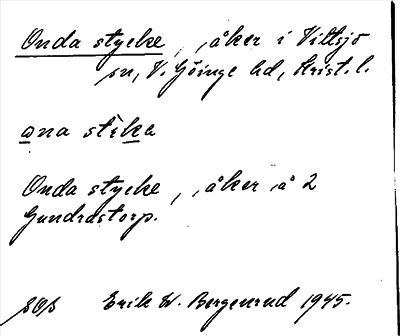 Onda stycke, åker i Vittsjö
sn, V. Göinge hd, Krist. l.
ona stìka
Onda stycke, åker å 2
Gundrastorp.
Erik W. Bergenrud 1945.